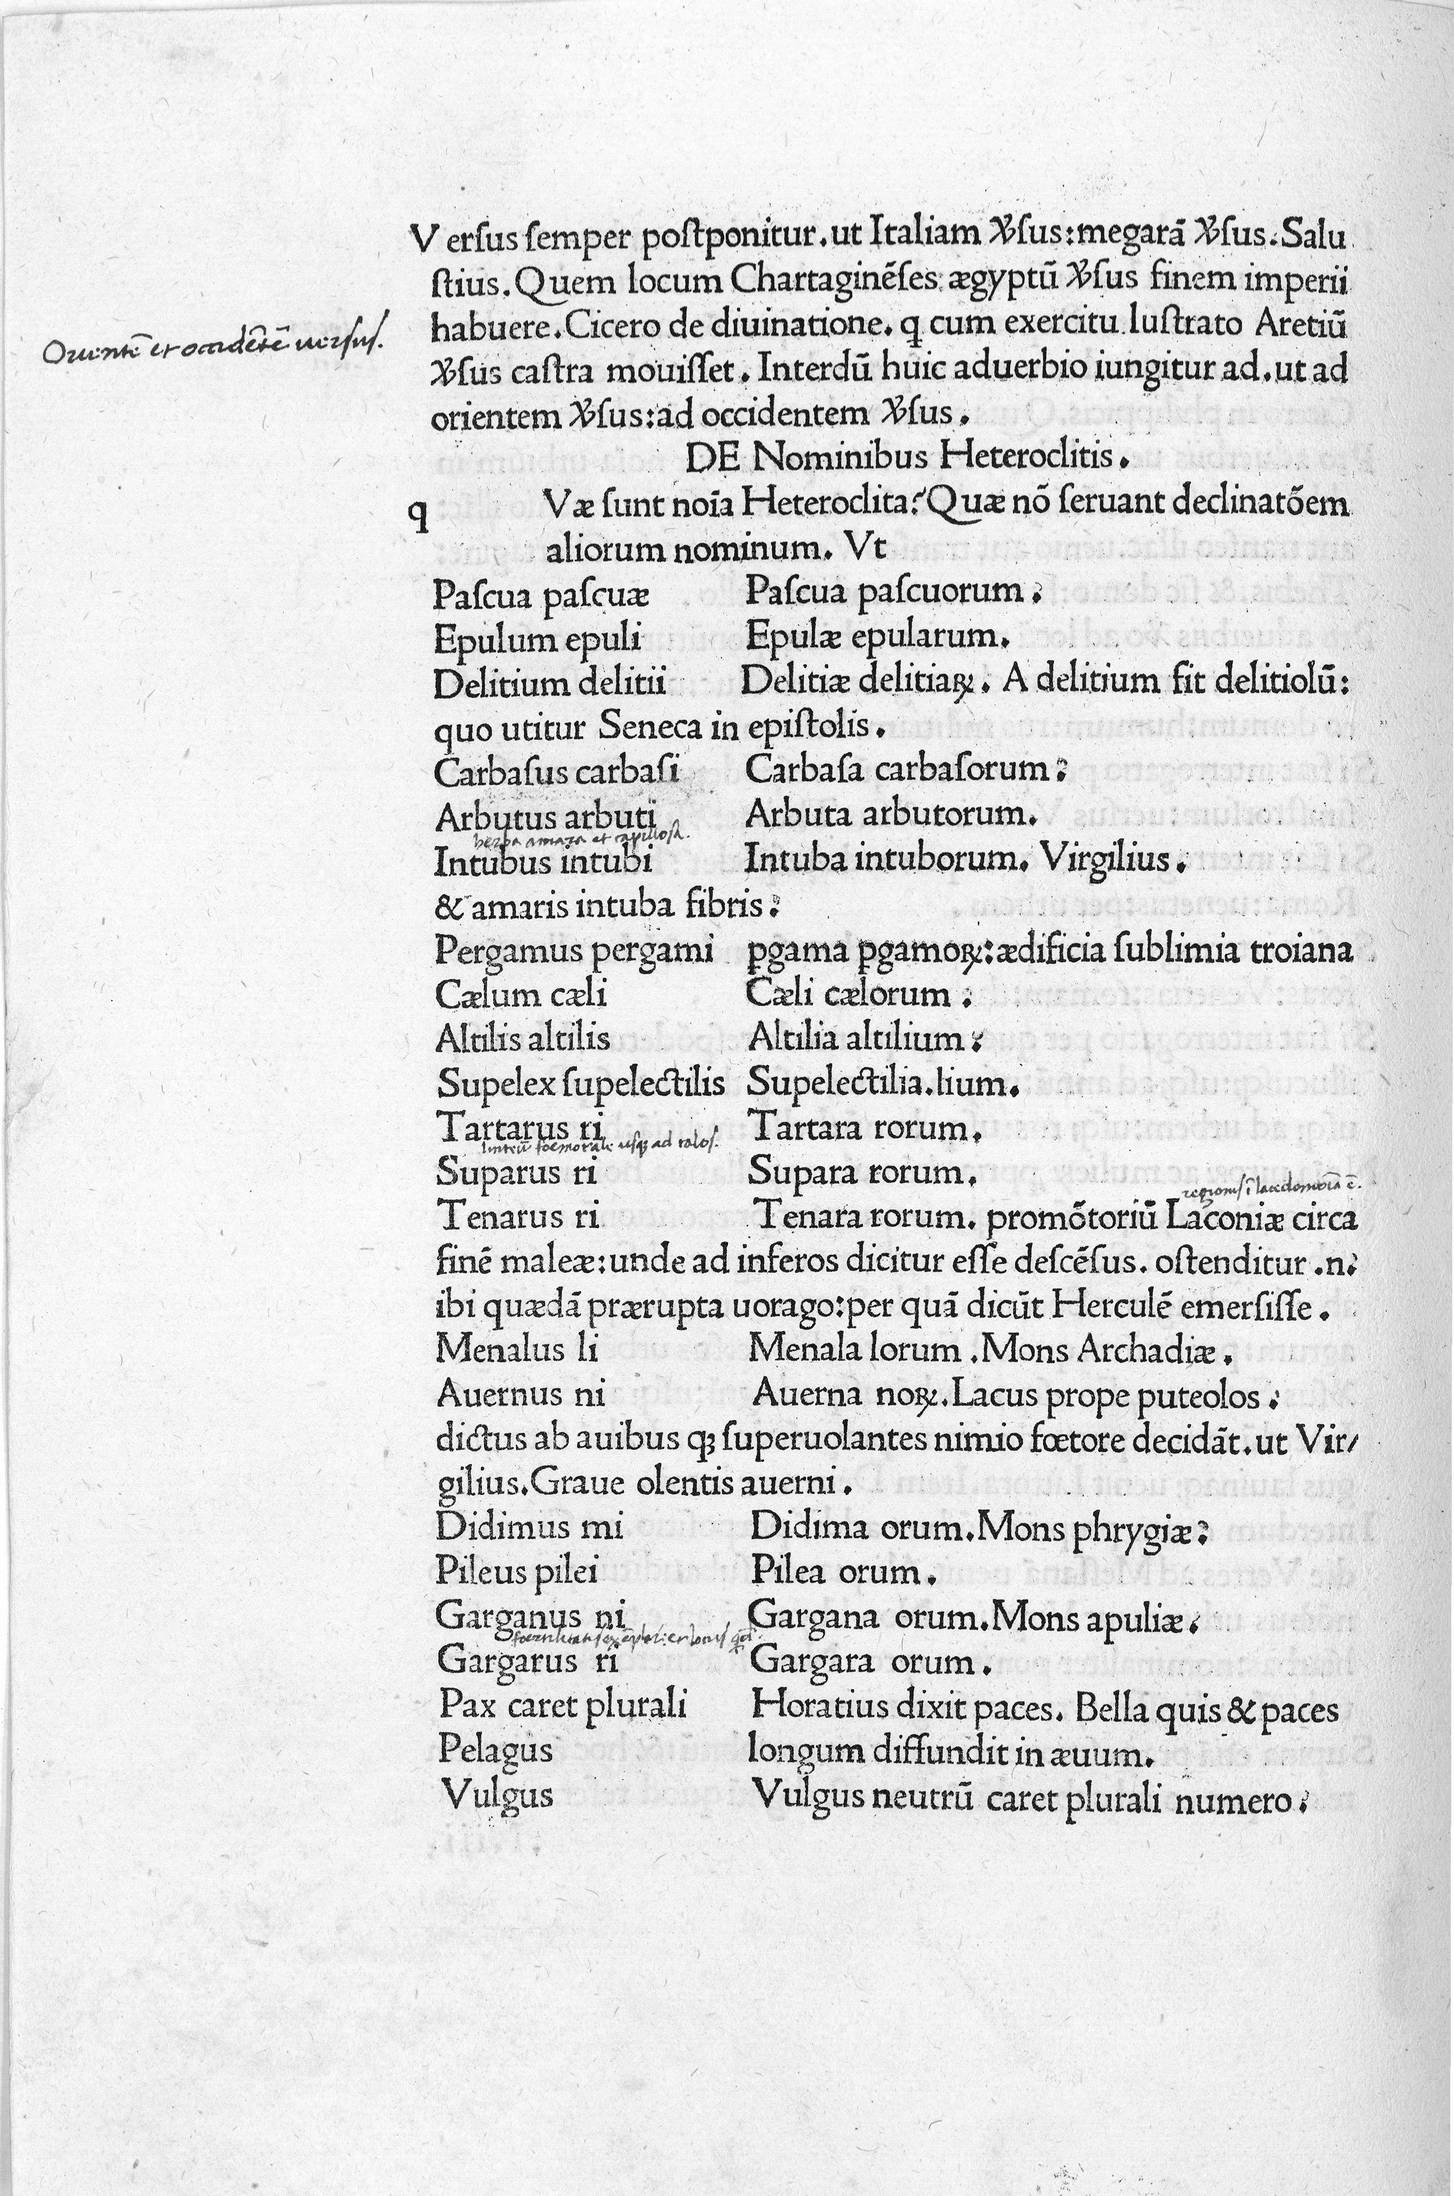 Verſus ſemper poſtponitur. ut Italiam ꝟſus: megarā ꝟſus. Salu
ſtius. Quem locum Chartaginēſes ægyptū ꝟſus finem imperii
habuere. Cicero de diuinatione. ꝗ cum exercitu luſtrato Aretiū
Orientē et occidētē uersus.
ꝟſus caſtra mouiſſet. Interdū huic aduerbio iungitur ad. ut ad
orientem ꝟſus: ad occidentem ꝟſus.
DE Nominibus Heteroclitis.
q Væ ſunt noīa Heteroclita? Quæ nō ſeruant declinatōem
aliorum nominum. Vt
Paſcua paſcuæ Paſcua paſcuorum.
Epulum epuli Epulæ epularum.
Delitium delitii Delitiæ delitiaꝝ. A delitium fit delitiolū:
quo utitur Seneca in epiſtolis.
Carbaſus carbaſi Carbaſa carbaſorum:
Arbutus arbuti Arbuta arbutorum.
herba amara et capillosa.
Intubus intubi Intuba intuborum. Virgilius.
& amaris intuba fibris:
Pergamus pergami ꝑgama ꝑgamoꝝ: ædificia ſublimia troiana
Cælum cæli Cæli cælorum:
Altilis altilis Altilia altilium:
Supelex ſupelectilis Supelectilia. lium.
Tartarus ri Tartara rorum.
linteū foemorale usq; ad talos.
Suparus ri Supara rorum.
regionis ī lacedomonia ē.
Tenarus ri Tenara rorum. promōtoriū Laconiæ circa
finē maleæ: unde ad inferos dicitur eſſe deſcēſus. oſtenditur .n.
ibi quædā prærupta uorago: per quā dicūt Herculē emerſiſſe.
Menalus li Menala lorum. Mons Archadiæ.
Auernus ni Auerna noꝝ. Lacus prope puteolos:
dictus ab auibus ꝙ ſuperuolantes nimio fœtore decidāt. ut Vir/
gilius. Graue olentis auerni.
Didimus mi Didima orum. Mons phrygiæ:
Pileus pilei Pilea orum.
Garganus ni Gargana orum. Mons apuliæ:
Gargarus ri Gargara orum.
Pax caret plurali Horatius dixit paces. Bella quis & paces
Pelagus longum diffundit in æuum.
Vulgus Vulgus neutrū caret plurali numero: